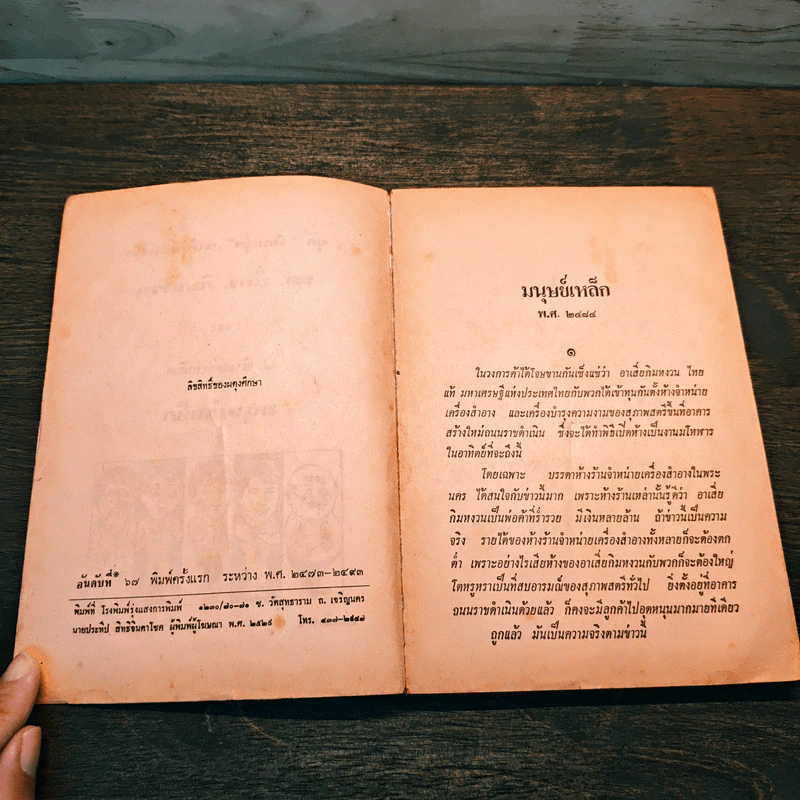 ลิขสิทธิ์ของผดุงศึกษา
อันดับที่ ๖๗ พิมพ์ครั้งแรก ระหว่าง พ.ศ. ๒๔๗๓-๒๔๙๓
พิมพ์ที่ โรงพิมพ์รุ่งแสงการพิมพ์ ๑๒๓๐/๘๐-๘๑ ซ. วัดสุทธาราม ถ. เจริญนคร
นายประทีป สิทธิจินดาโชค ผู้พิมพ์ผู้โฆษณา พ.ศ. ๒๕๒๔ โทร.
มนุษย์เหล็ก
พ.ศ. ๒๔๘๔
๑
ในวงการค้าได้โจษขานกันเซ็งแซ่ว่า อาเสี่ยกิมหงวน ไทย
แท้ มหาเศรษฐีแห่งประเทศไทยกับพวกได้เข้าทุนกันตั้งห้างจำหน่าย
เครื่องสำอาง และเครื่องบำรุงความงามของสุภาพสตรีขึ้นที่อาคาร
สร้างใหม่ถนนราชดำเนิน ซึ่งจะได้ทำพิธีเปิดห้างเป็นงานมโหฬาร
ในอาทิตย์ที่จะถึงนี้
โดยเฉพาะ บรรดาห้างร้านจำหน่ายเครื่องสำอางในพระ
นคร ได้สนใจกับข่าวนี้มาก เพราะห้างร้านเหล่านั้นรู้ดีว่า อาเสี่ย
กิมหงวนเป็นพ่อค้าที่ร่ำรวย มีเงินหลายล้าน ถ้าข่าวนี้เป็นความ
จริง รายได้ของห้างร้านจำหน่ายเครื่องสำอางทั้งหลายก็จะต้องตก
ต่ำ เพราะอย่างไรเสียห้างของอาเสี่ยกิมหงวนกับพวกก็จะต้องใหญ่
โตหรูหราเป็นที่สบอารมณ์ของสุภาพสตรีทั่วไป ยิ่งตั้งอยู่ที่อาคาร
ถนนราชดำเนินด้วยแล้ว ก็คงจะมีลูกค้าไปอุดหนุนมากมายทีเดียว
ถูกแล้ว มันเป็นความจริงตามข่าวนี้